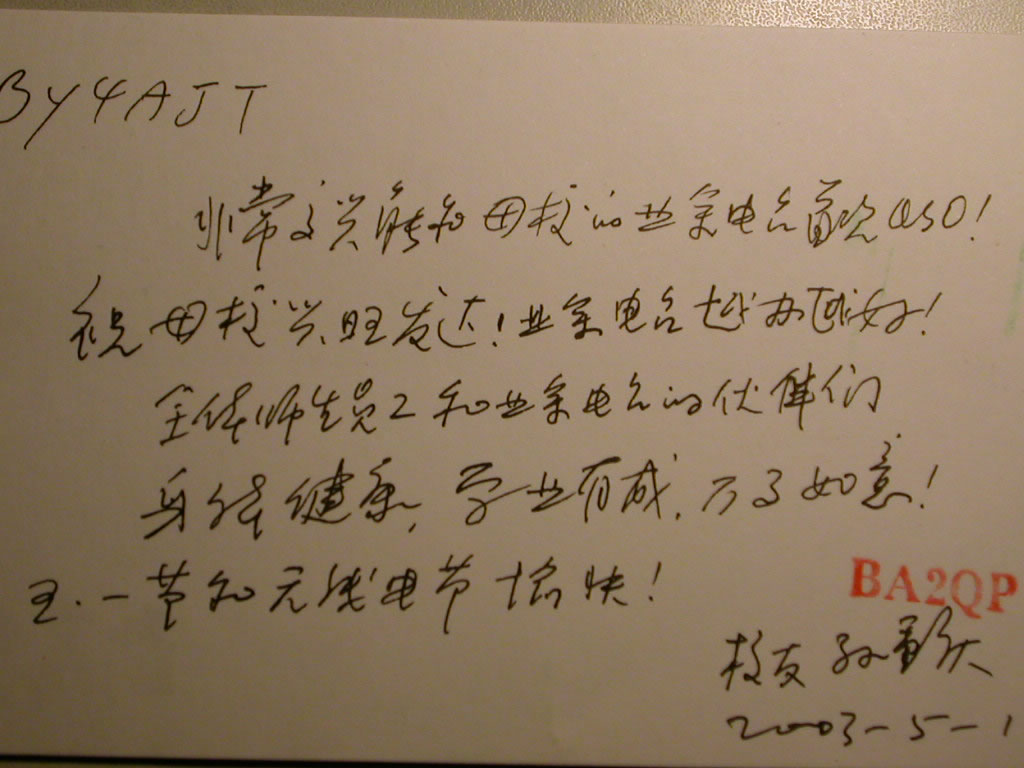 BY4AJT
非常高兴能和母校的业余电台首次QSO!
祝母校兴旺发达!业余电台越办越好!
全体师生员工和业余电台的伙伴们
身体健康,学业有成,万事如意!
五.一节和无线电节愉快!
BA2QP
校友 孙
2003-5-1